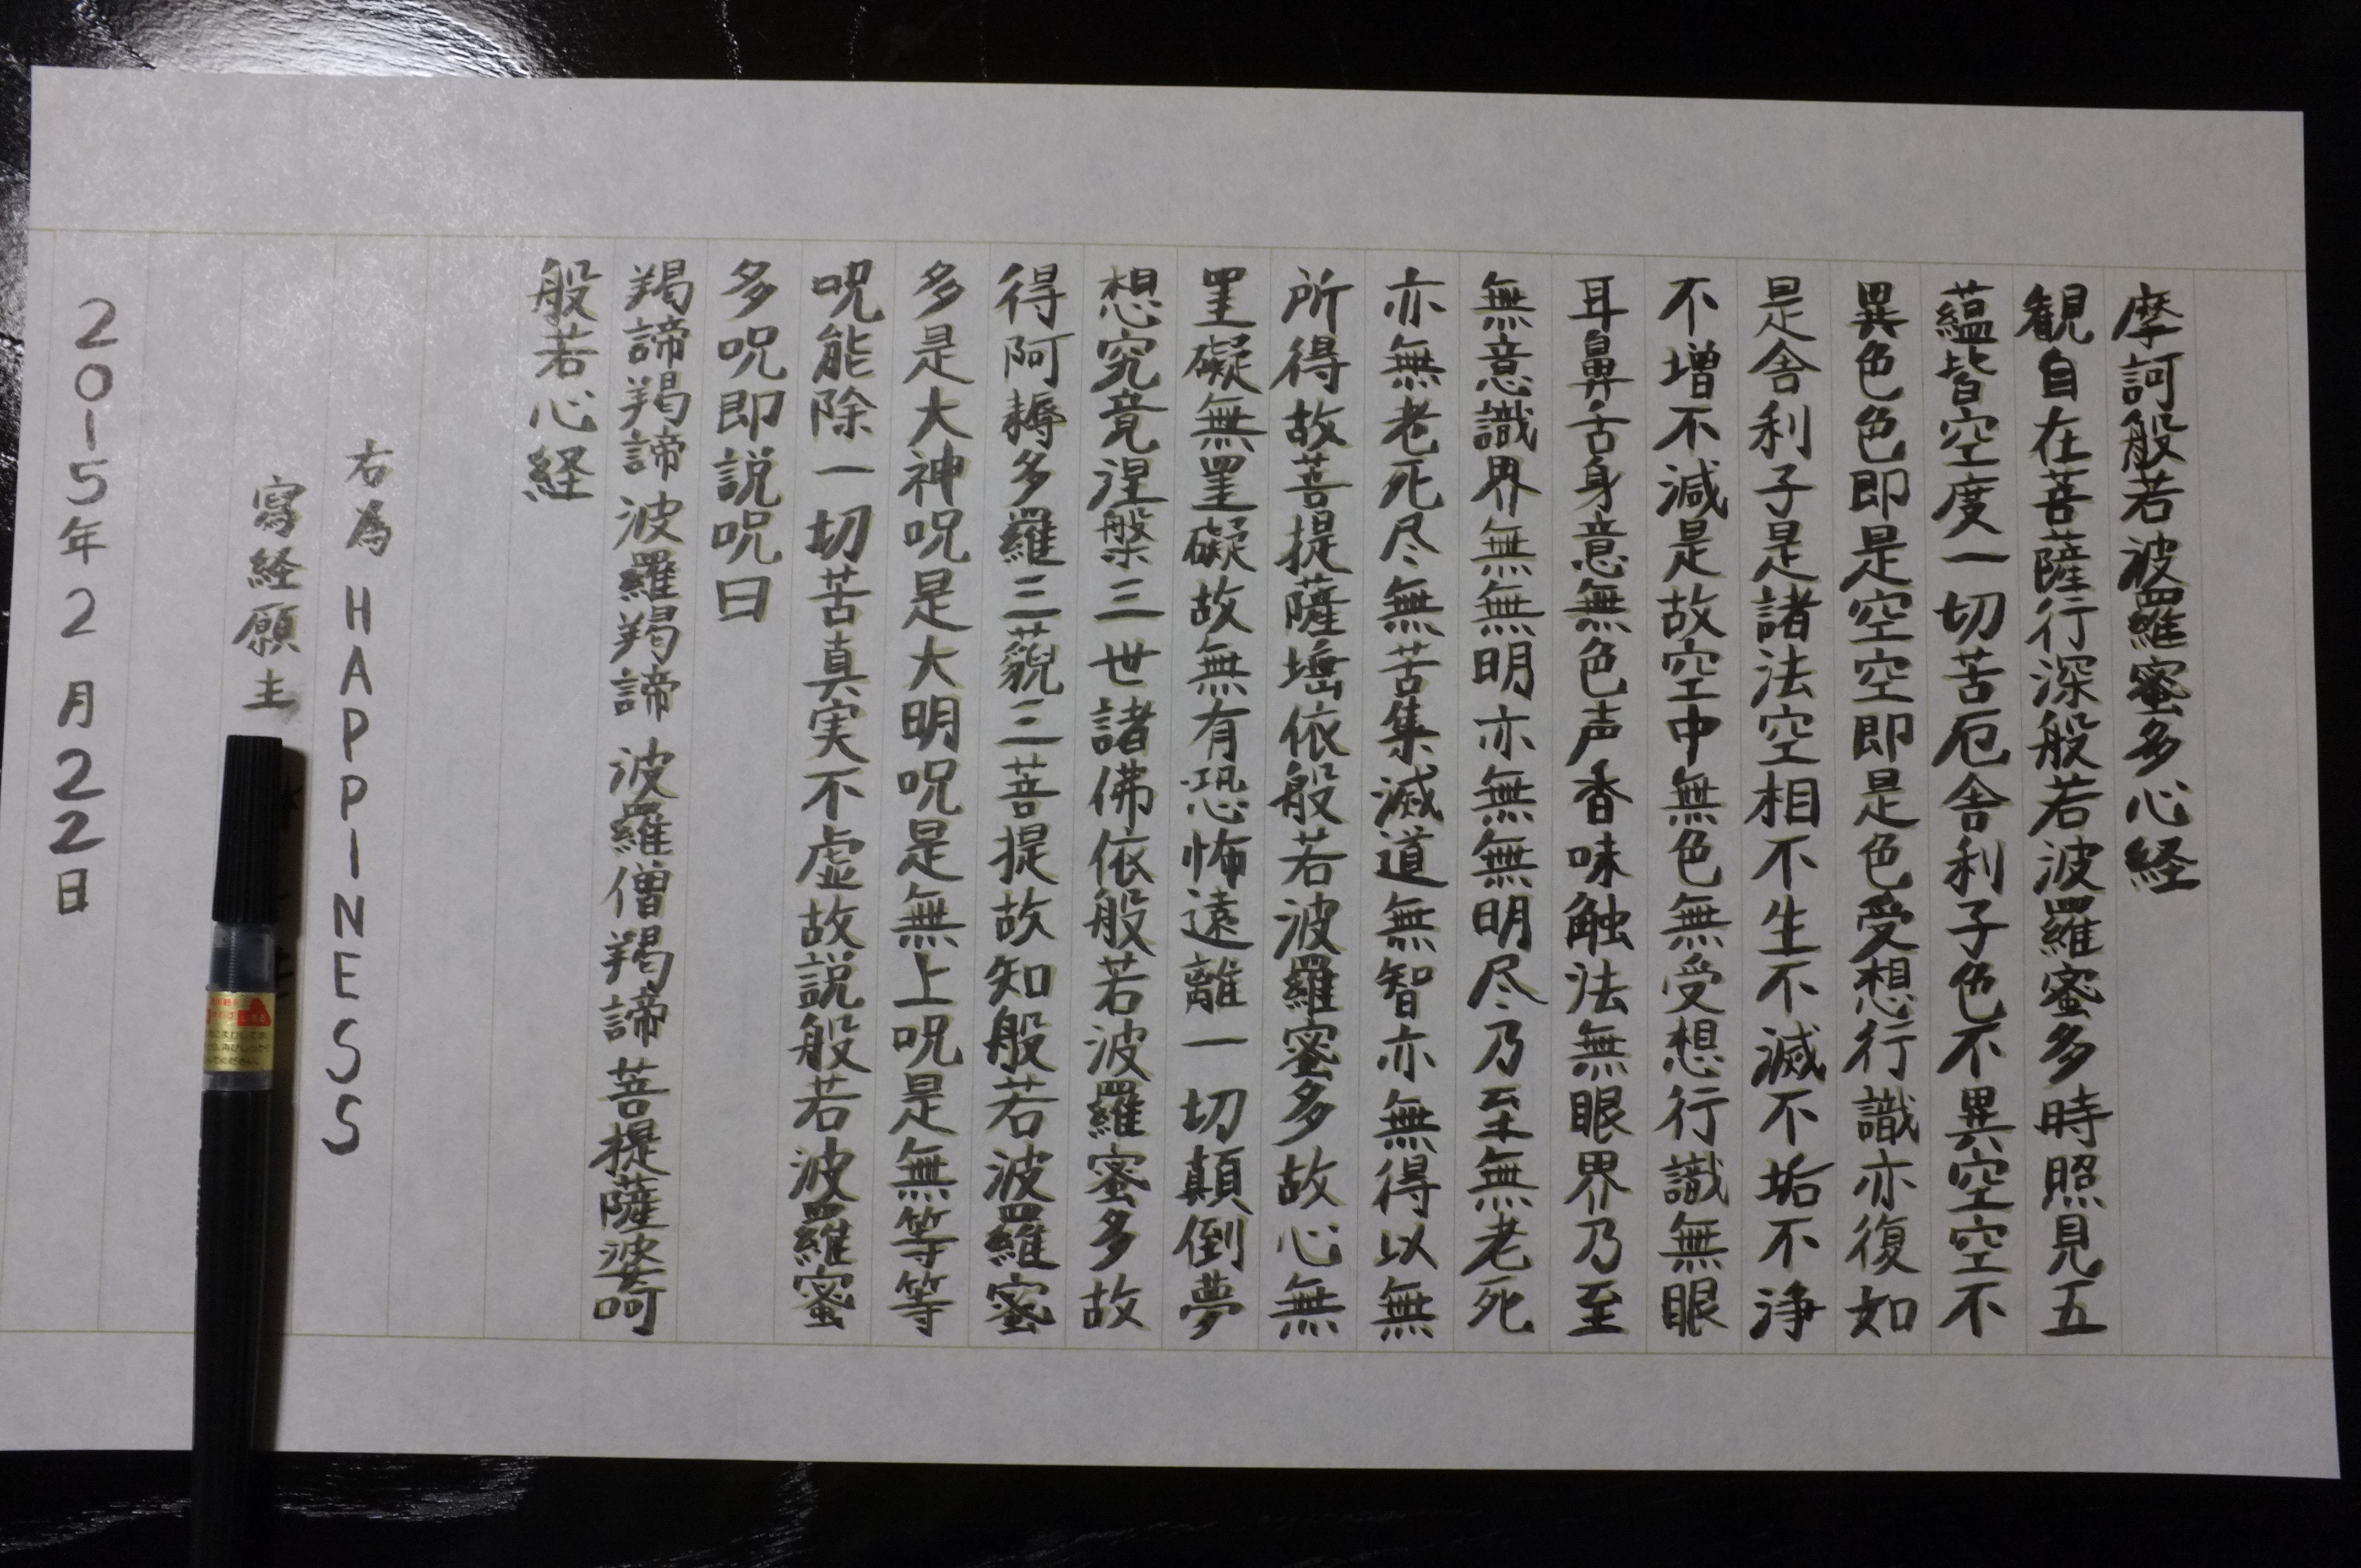 摩訶般若波羅蜜多心経
観自在菩薩行深般若波羅蜜多時照見五
蘊皆空度一切苦厄舎利子色不異空空不
異色色即是空空即是色受想行識亦復如
是舎利子是諸法空相不生不滅不垢不浄
不増不減是故空中無色無受想行識無眼
耳鼻舌身意無色声香味触法無眼界乃至
無意識界無無明亦無無明尽乃至無老死
亦無老死尽無苦集滅道無智亦無得以無
所得故菩提薩埵依般若波羅蜜多故心無
罣礙無罣礙故無有恐怖遠離一切顛倒夢
想究竟涅槃三世諸佛依般若波羅蜜多故
得阿耨多羅三藐三菩提故知般若波羅蜜
多是大神呪是大明呪是無上呪是無等等
呪能除一切苦真実不虚故説般若波羅蜜
多呪即説呪曰
羯諦羯諦波羅羯諦 波羅僧羯諦 菩提薩婆呵
般若心経
右為 HAPPINESS
寫経願主
2015年2月22日